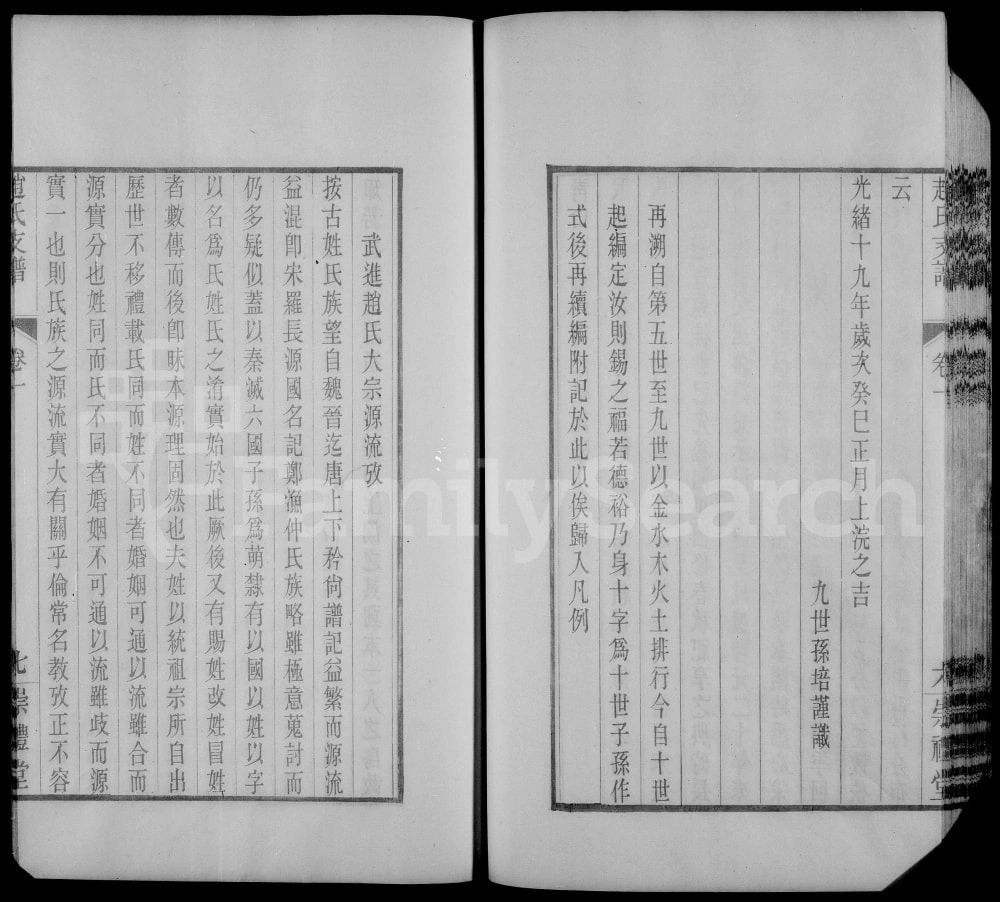 趙氏支譜
卷一
六
崇禮堂
云
光緒十九年歲次癸巳正月上浣之吉
九世孫培謹識
再溯自第五世至九世以金水木火土排行今自十世
起編定汝則錫之福若德裕乃身十字爲十世子孫作
式後再續編附記於此以俟歸入凡例
武進趙氏大宗源流攷
按古姓氏族望自魏晉迄唐上下矜尙譜記益繁而源流
益混卽宋羅長源國名記鄭漁仲氏族略雖極意蒐討而
仍多疑似蓋以秦滅六國子孫爲萌隸有以國以姓以字
以名爲氏姓氏之淆實始於此厥後又有賜姓改姓冒姓
者數傳而後卽昧本源理固然也夫姓以統祖宗所自出
歷世不移禮載氏同而姓不同者婚姻可通以流雖合而
源實分也姓同而氏不同者婚姻不可通以流雖歧而源
實一也則氏族之源流實大有關乎倫常名教攷正不容
趙氏支譜
卷一
七
崇禮堂
FamilySearch